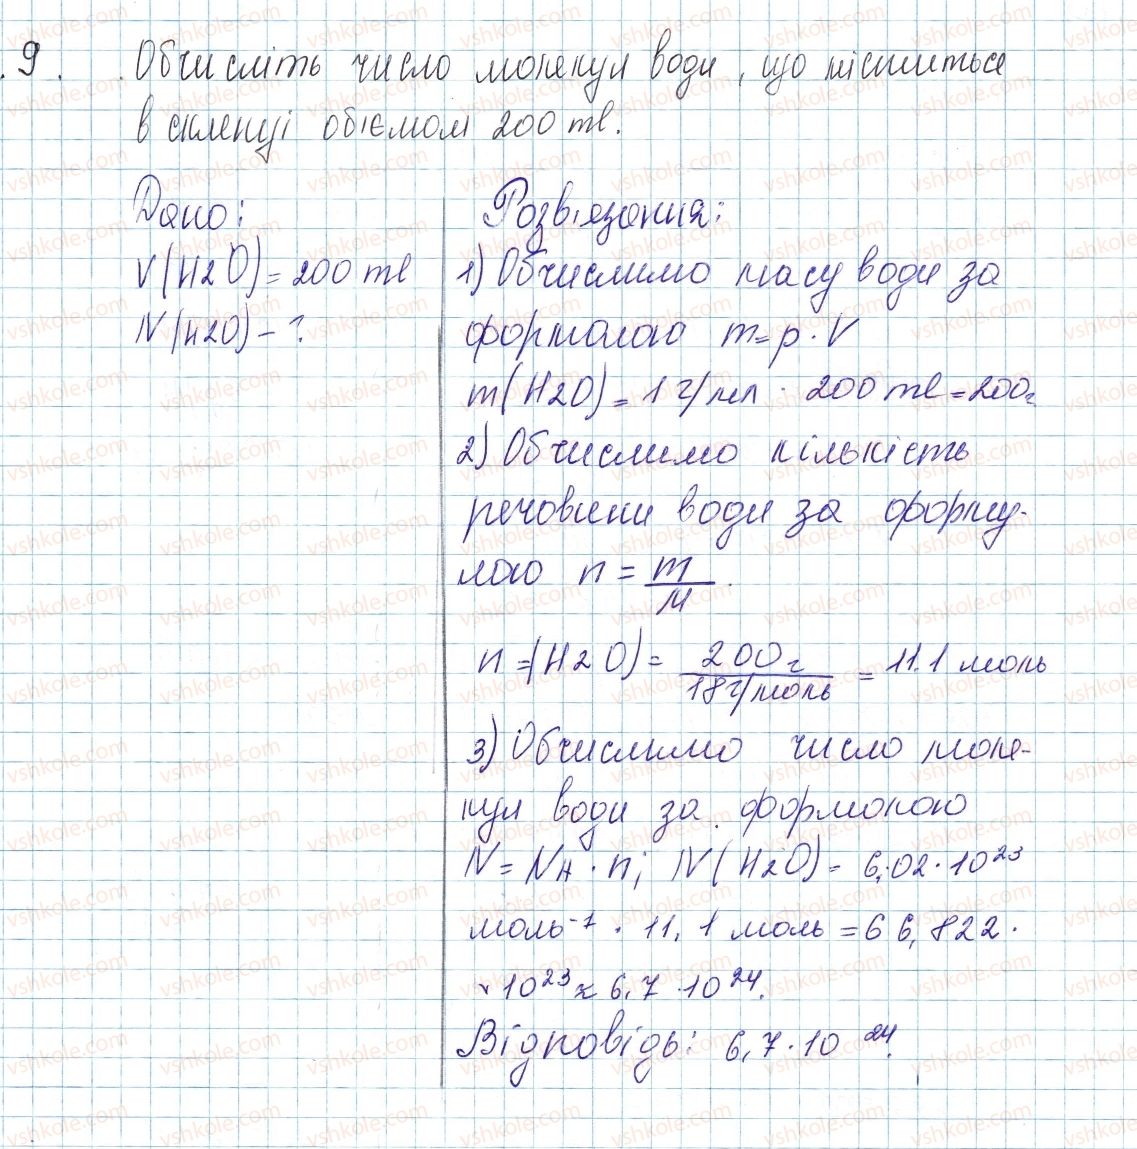 9. Обчисліть число молекул води, що міститься
в склянці об'ємом 200 ml.
Дано:
V(H2O)=200 ml
N(H2O)-?
Розв'язання:
1) Обчислимо масу води за
формолою m=ρ·V
m(H2O)=1 г/мл · 200 ml=200г
2) Обчислимо кількість
речовини води за форму-
лою n = m/M.
n=(H2O)= 200г/18г/моль = 11.1 моль
3) Обчислимо число моле-
кул води за формолою
N=NA·n; N(H2O)=6,02·10²³
моль⁻¹ · 11,1 моль=66,822·
·10²³≈6,7·10²⁴.
Відповідь: 6,7·10²⁴.